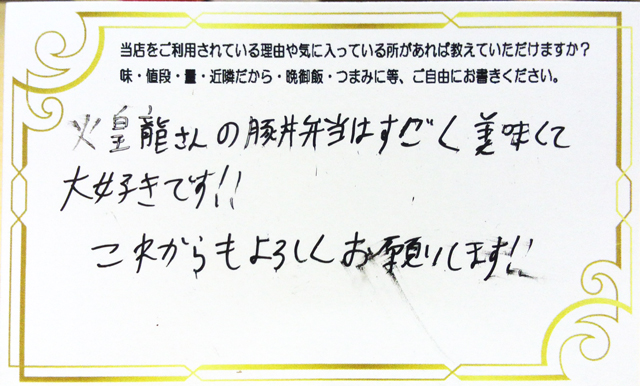 当店をご利用されている理由や気に入っている所があれば教えていただけますか？
味・値段・量・近隣だから・晩御飯・つまみに等、ご自由にお書きください。
火皇龍さんの豚丼弁当はすごく美味くて
大好きです!!
これからもよろしくお願いします!!